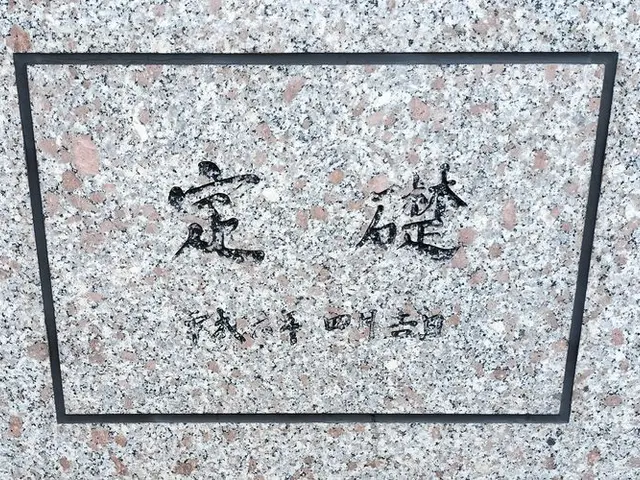 定礎
平成 年四月吉日